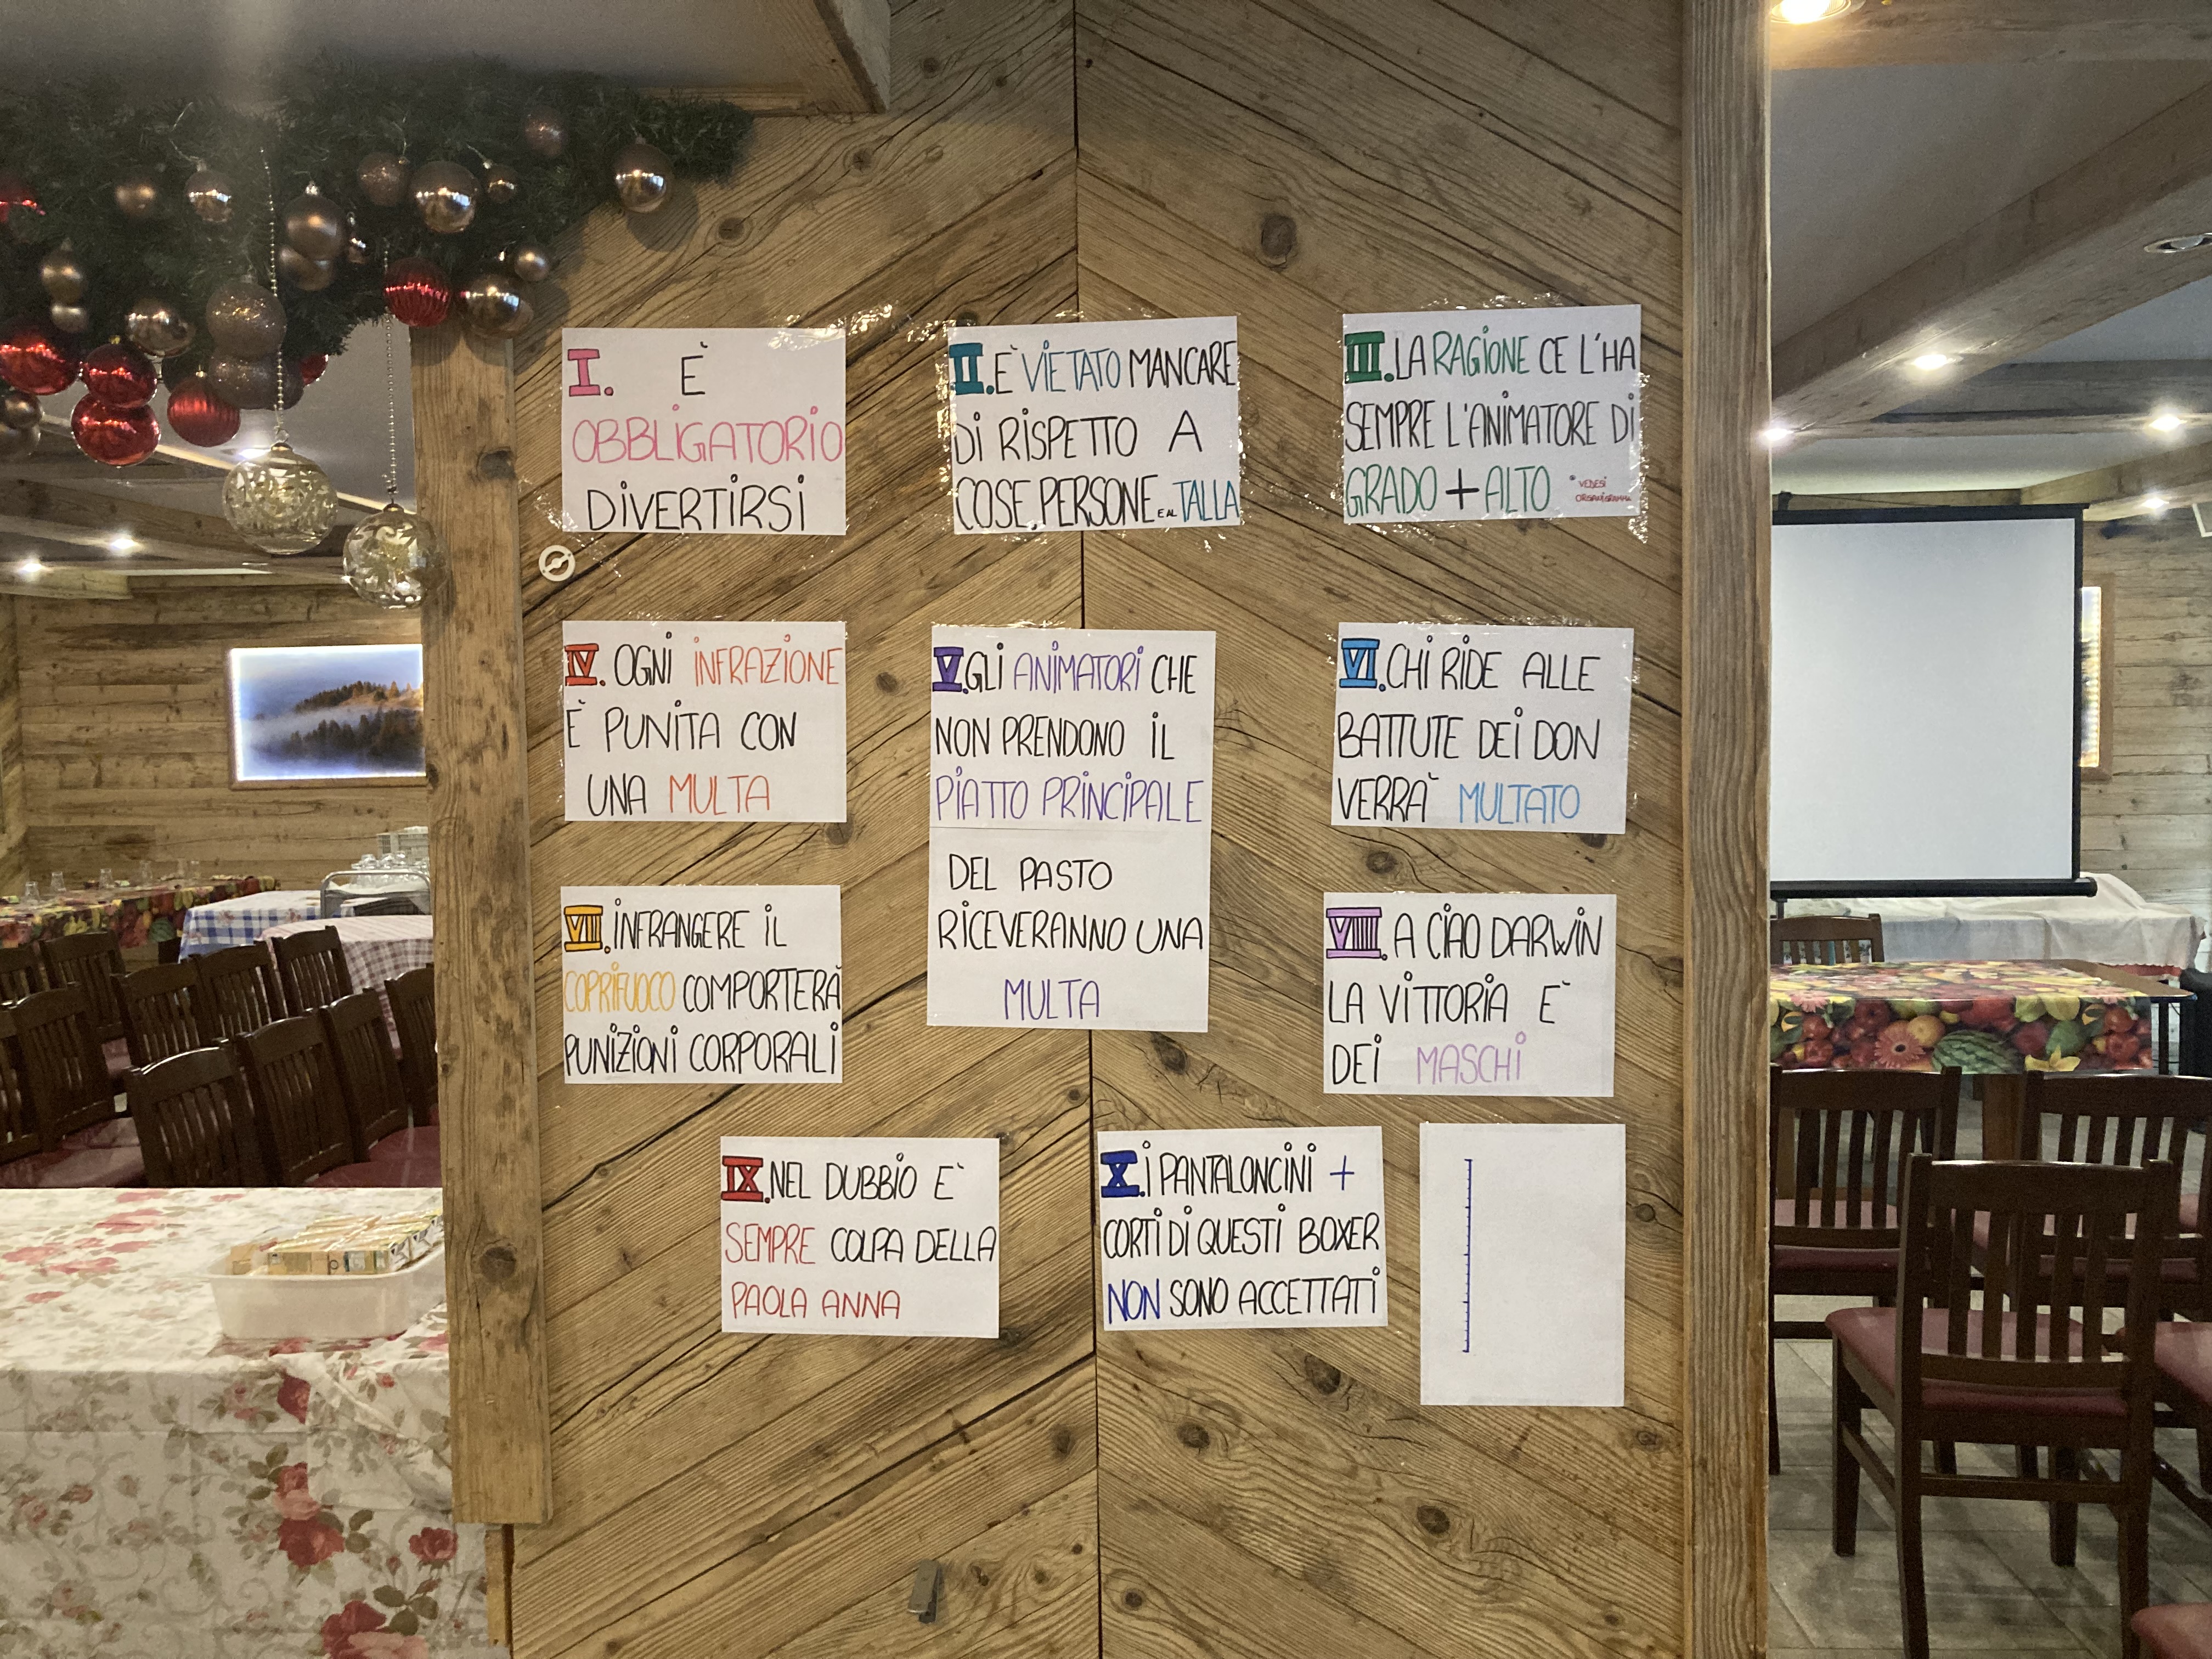 I. È
OBBLIGATORIO
DIVERTIRSI
II. È VIETATO MANCARE
DI RISPETTO A
COSE, PERSONE E AL TALLA
III. LA RAGIONE CE L'HA
SEMPRE L'ANIMATORE DI
GRADO + ALTO * VEDESI
ORGANIGRAMMA
IV. OGNI INFRAZIONE
È PUNITA CON
UNA MULTA
V. GLI ANIMATORI CHE
NON PRENDONO IL
PIATTO PRINCIPALE
DEL PASTO
RICEVERANNO UNA
MULTA
VI. CHI RIDE ALLE
BATTUTE DEI DON
VERRA' MULTATO
VII. INFRANGERE IL
COPRIFUOCO COMPORTERÀ
PUNIZIONI CORPORALI
VIII. A CIAO DARWIN
LA VITTORIA E'
DEI MASCHI
IX. NEL DUBBIO E'
SEMPRE COLPA DELLA
PAOLA ANNA
X. I PANTALONCINI +
CORTI DI QUESTI BOXER
NON SONO ACCETTATI